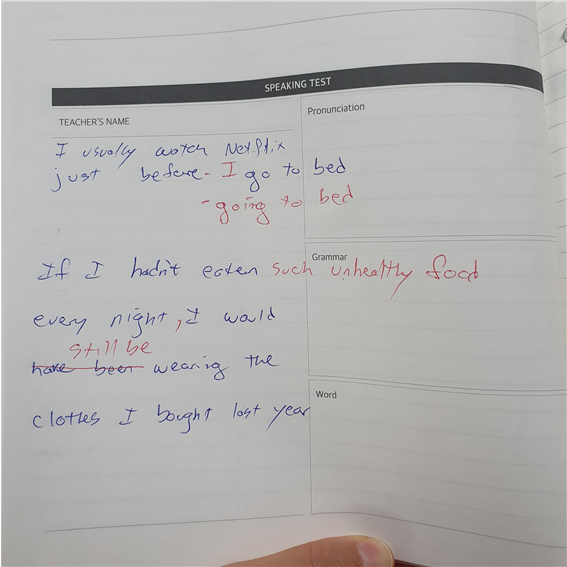 SPEAKING TEST
TEACHER'S NAME
Pronunciation
I usually watch Netflix
just before - I go to bed
- going to bed
Grammar
If I hadn't eaten such unhealthy food
every night, I would
still be
have been wearing the
Word
clothes I bought last year